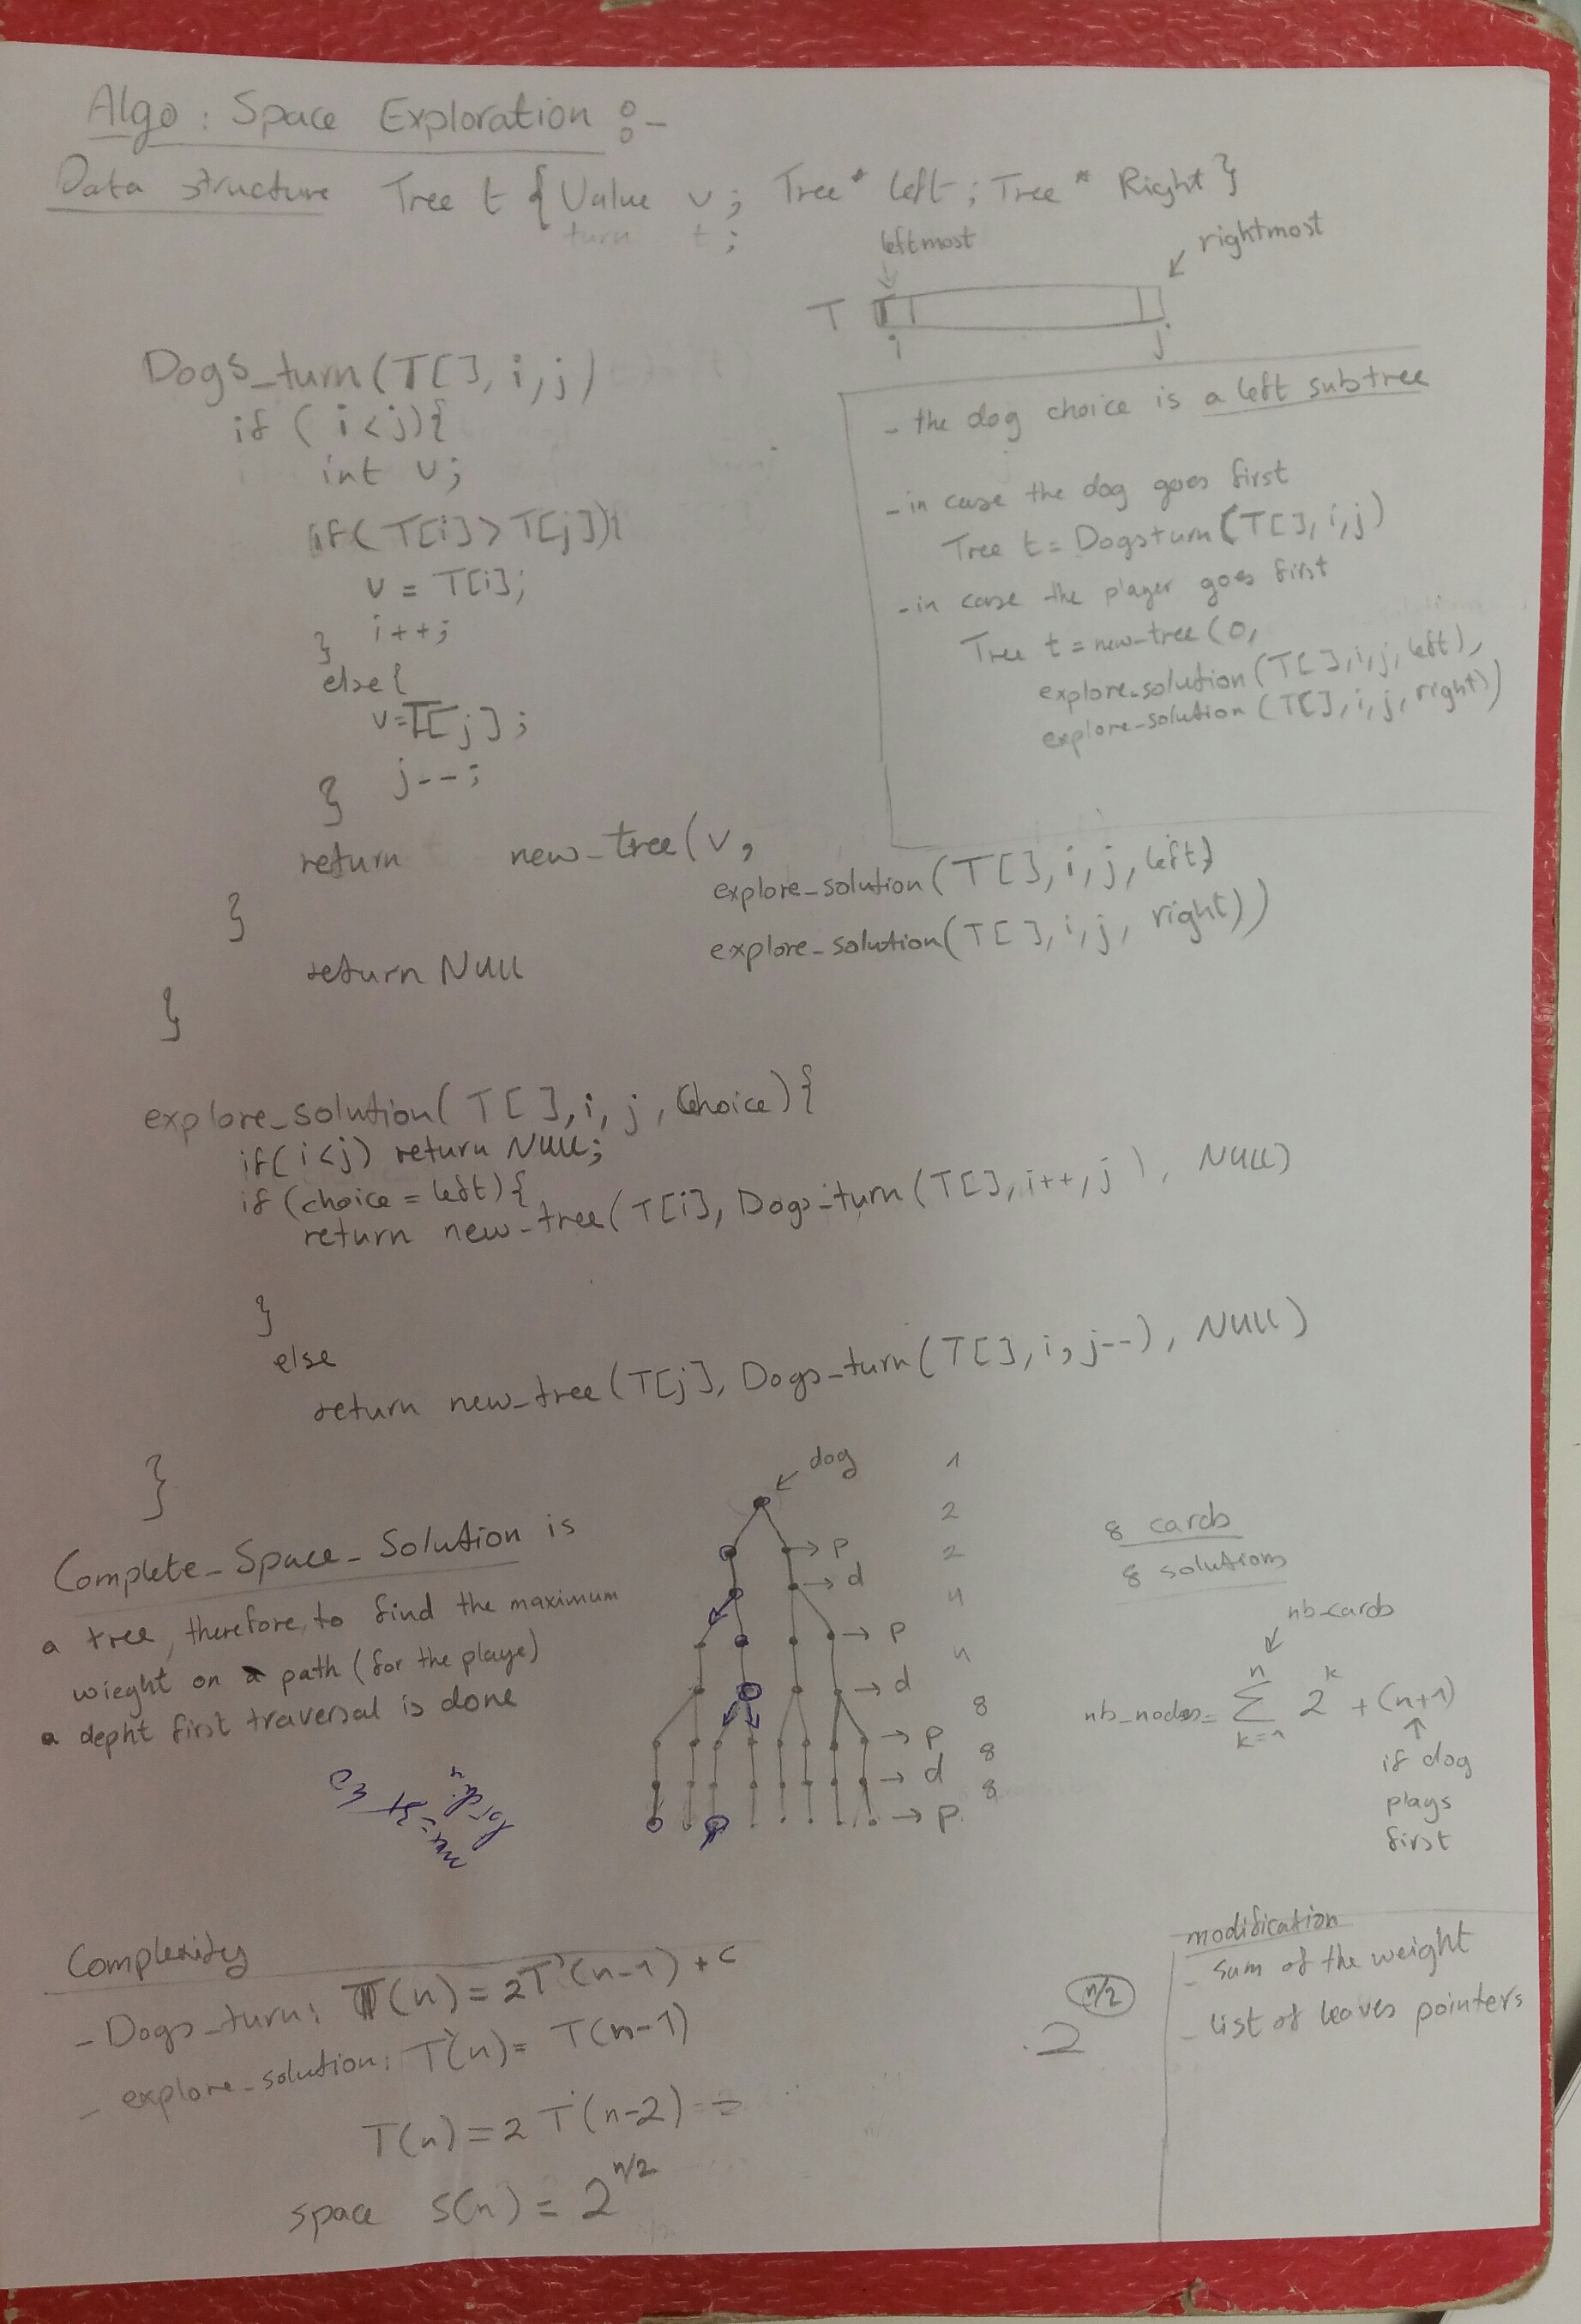 Algo : Space Exploration :-
Data structure Tree t { Value v; Tree* left ; Tree* Right }
turn t ;
leftmost
rightmost
T
i
j
Dogs_turn(T[], i, j)
if ( i < j){
int v;
if( T[i] > T[j]){
v = T[i];
i++;
}
else{
v=T[j];
j--;
}
return new_tree(v,
explore_solution(T[], i, j, left)
explore_solution(T[], i, j, right))
}
return NULL
}
- the dog choice is a left subtree
- in case the dog goes first
Tree t = Dogsturn(T[], i, j)
- in case the player goes first
Tree t = new-tree (0,
explore_solution(T[], i, j, left),
explore_solution(T[], i, j, right))
explore_solution( T[], i, j, choice){
if( i < j) return NULL;
if (choice = left){
return new-tree(T[i], Dogs_turn(T[], i++, j), NULL)
}
else
return new_tree(T[j], Dogs_turn(T[], i, j--), NULL)
}
Complete_Space_Solution is
a tree, therefore, to find the maximum
wieght on a path (for the playe)
a depht first traversal is done
dog
p
d
p
d
p
d
p
1
2
2
4
4
8
8
8
8 cards
8 solutions
nb-cards
nb_nodes = n ∑ k=1 2^k + (n+1)
if dog
plays
first
Complexity
- Dogs_turn: T(n) = 2T'(n-1) + c
- explore_solution: T'(n) = T(n-1)
T(n) = 2 T(n-2)
space S(n) = 2^n/2
2^n/2
modification
- sum of the weight
- list of leaves pointers